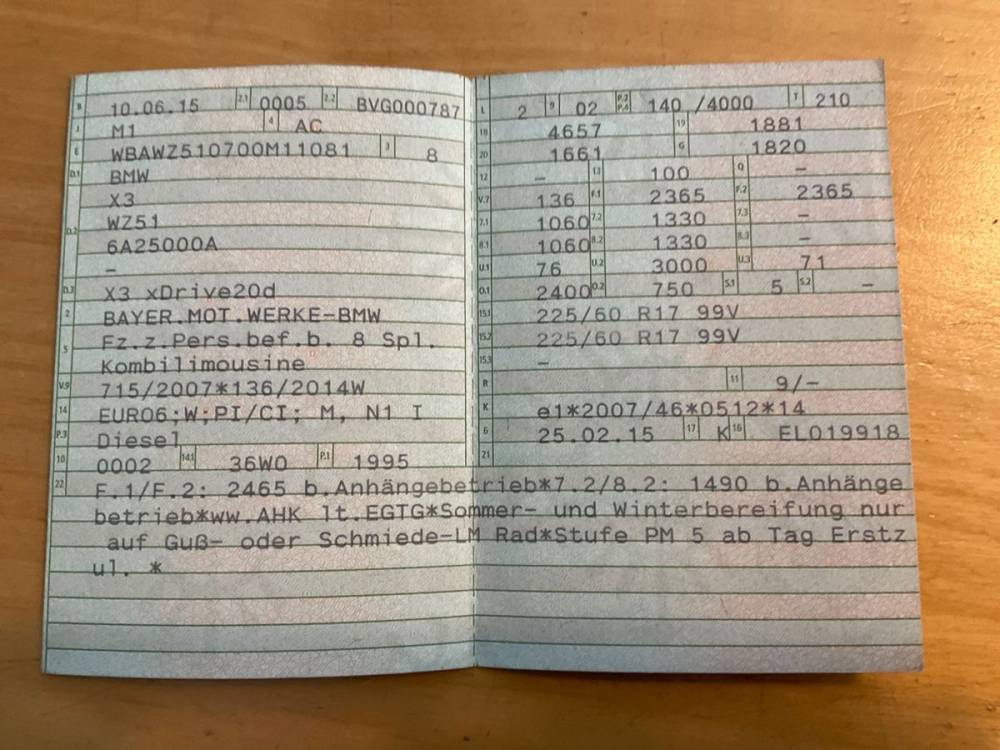 B 10.06.15 2.1 0005 2.2 BVG000787
J M1 4 AC
E WBAWZ510700M11081 3 8
D.1 BMW
X3
D.2 WZ51
6A25000A
–
D.3 X3 xDrive20d
2 BAYER.MOT.WERKE-BMW
5 Fz.z.Pers.bef.b. 8 Spl.
Kombilimousine
V.9 715/2007*136/2014W
14 EURO6;W;PI/CI; M, N1 I
P.3 Diesel
10 0002 14.1 36W0 P.1 1995
L 2 9 02 P.2 P.4 140 /4000 T 210
18 4657 19 1881
20 1661 G 1820
12 – 13 100 Q –
V.7 136 F.1 2365 F.2 2365
7.1 1060 7.2 1330 7.3 –
8.1 1060 8.2 1330 8.3 –
U.1 76 U.2 3000 U.3 71
O.1 2400 O.2 750 S.1 5 S.2 –
15.1 225/60 R17 99V
15.2 225/60 R17 99V
15.3 –
R 11 9/–
K e1*2007/46*0512*14
6 25.02.15 17 K 16 EL019918
21
22 F.1/F.2: 2465 b.Anhängebetrieb*7.2/8.2: 1490 b.Anhänge
betrieb*ww.AHK lt.EGTG*Sommer- und Winterbereifung nur
auf Guß- oder Schmiede-LM Rad*Stufe PM 5 ab Tag Erstz
ul. *